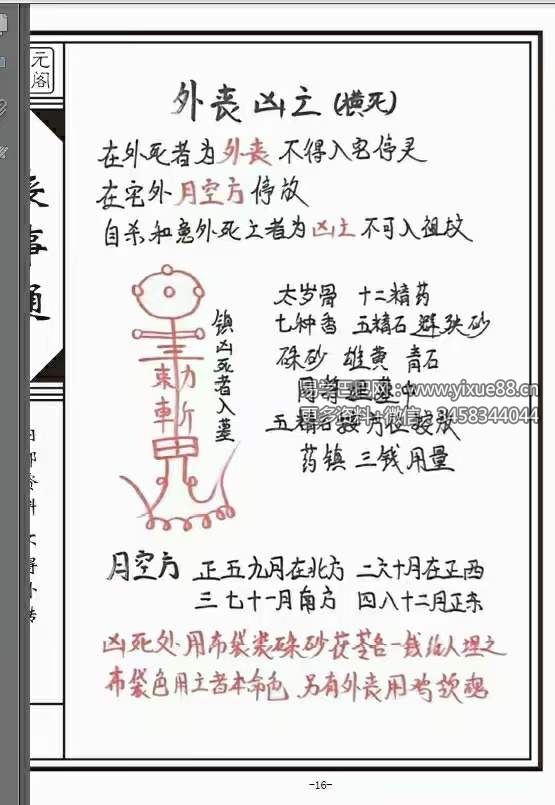 元
阁
丧
事
通
外丧凶亡（横死）
在外死者为外丧不得入宅停灵
在宅外月空方停放
自杀和意外死亡者为凶亡不可入祖坟
镇凶死者入墓
敕力
斩
太岁骨 十二精药
七种香 五精石 避殃砂
硃砂 雄黄 青石
易学巴巴网：www.yixue88.cn
更多资料+微信：3458344044
五精石按方位按放
药镇 三钱用量
内部资料 不得外传
月空方 正五九月在北方 二六十月在正西
三七十一月南方 四八十二月正东
凶死处用布袋装硃砂茯苓各一钱给人埋之
布袋色用亡者本命色 另有外丧用鸡领魂
-16-